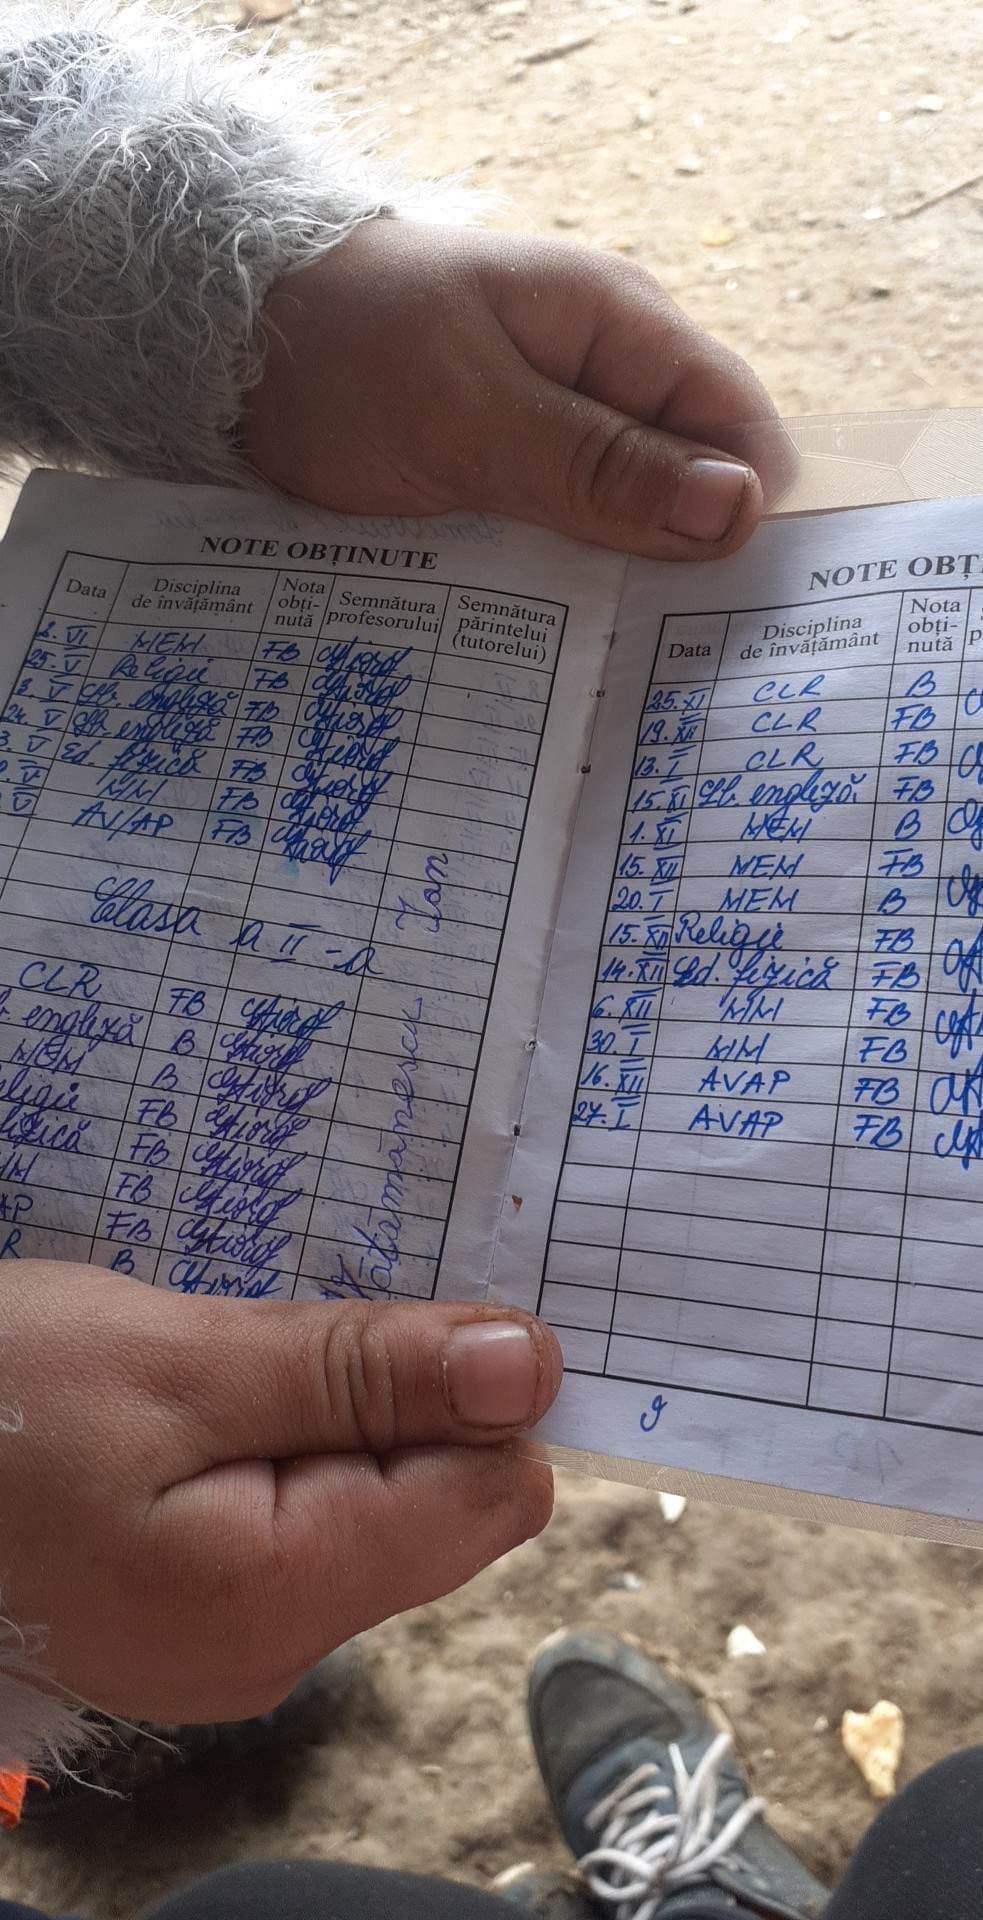 NOTE OBȚINUTE
Data Disciplina de învățământ Nota obți-nută Semnătura profesorului Semnătura părintelui (tutorelui)
2. VI MEM FB
25. V Religie FB
3. V Lb. engleză FB
24. V Lb. engleză FB
3. V Ed. fizică FB
V MM FB
V AV/AP FB
Clasa a II-a
CLR FB
engleză B
MEM B
ligie FB
fizică FB
MM FB
AP FB
R B
Vătămănescu Ion
NOTE OBȚI
Data Disciplina de învățământ Nota obți-nută
25. XI CLR B
19. XII CLR FB
13. I CLR FB
15. XI Lb. engleză FB
1. XI MEM B
15. XII MEM FB
20. I MEM B
15. XII Religie FB
14. XII Ed. fizică FB
6. XII MM FB
30. I MM FB
16. XII AVAP FB
27. I AVAP FB
9